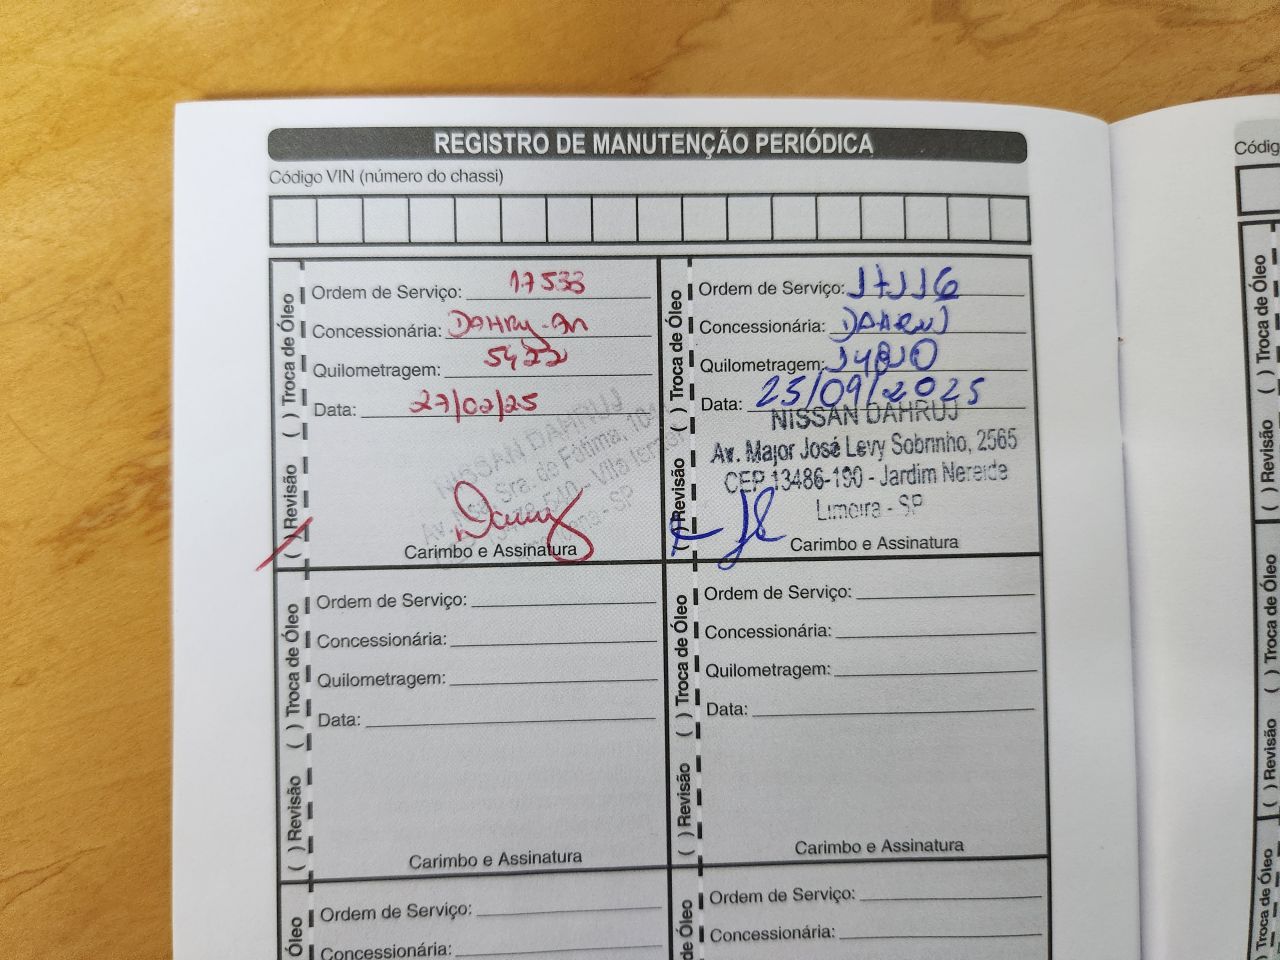 REGISTRO DE MANUTENÇÃO PERIÓDICA
Código VIN (número do chassi)
( ) Revisão ( ) Troca de Óleo
Ordem de Serviço: 17533
Concessionária:
Quilometragem: 5422
Data: 27/02/25
NISSAN DAHRUJ
Sra. de Fátima,
Carimbo e Assinatura
( ) Revisão ( ) Troca de Óleo
Ordem de Serviço:
Concessionária: DAHRUJ
Quilometragem:
Data: 25/09/2025
NISSAN DAHRUJ
Av. Major José Levy Sobrinho, 2565
CEP 13486-190 - Jardim Nereide
Limeira - SP
Carimbo e Assinatura
( ) Revisão ( ) Troca de Óleo
Ordem de Serviço:
Concessionária:
Quilometragem:
Data:
Carimbo e Assinatura
( ) Revisão ( ) Troca de Óleo
Ordem de Serviço:
Concessionária:
Quilometragem:
Data:
Carimbo e Assinatura
Óleo
Ordem de Serviço:
Concessionária:
de Óleo
Ordem de Serviço:
Concessionária:
Códig
( ) Revisão ( ) Troca de Óleo
( ) Revisão ( ) Troca de Óleo
Troca de Óleo